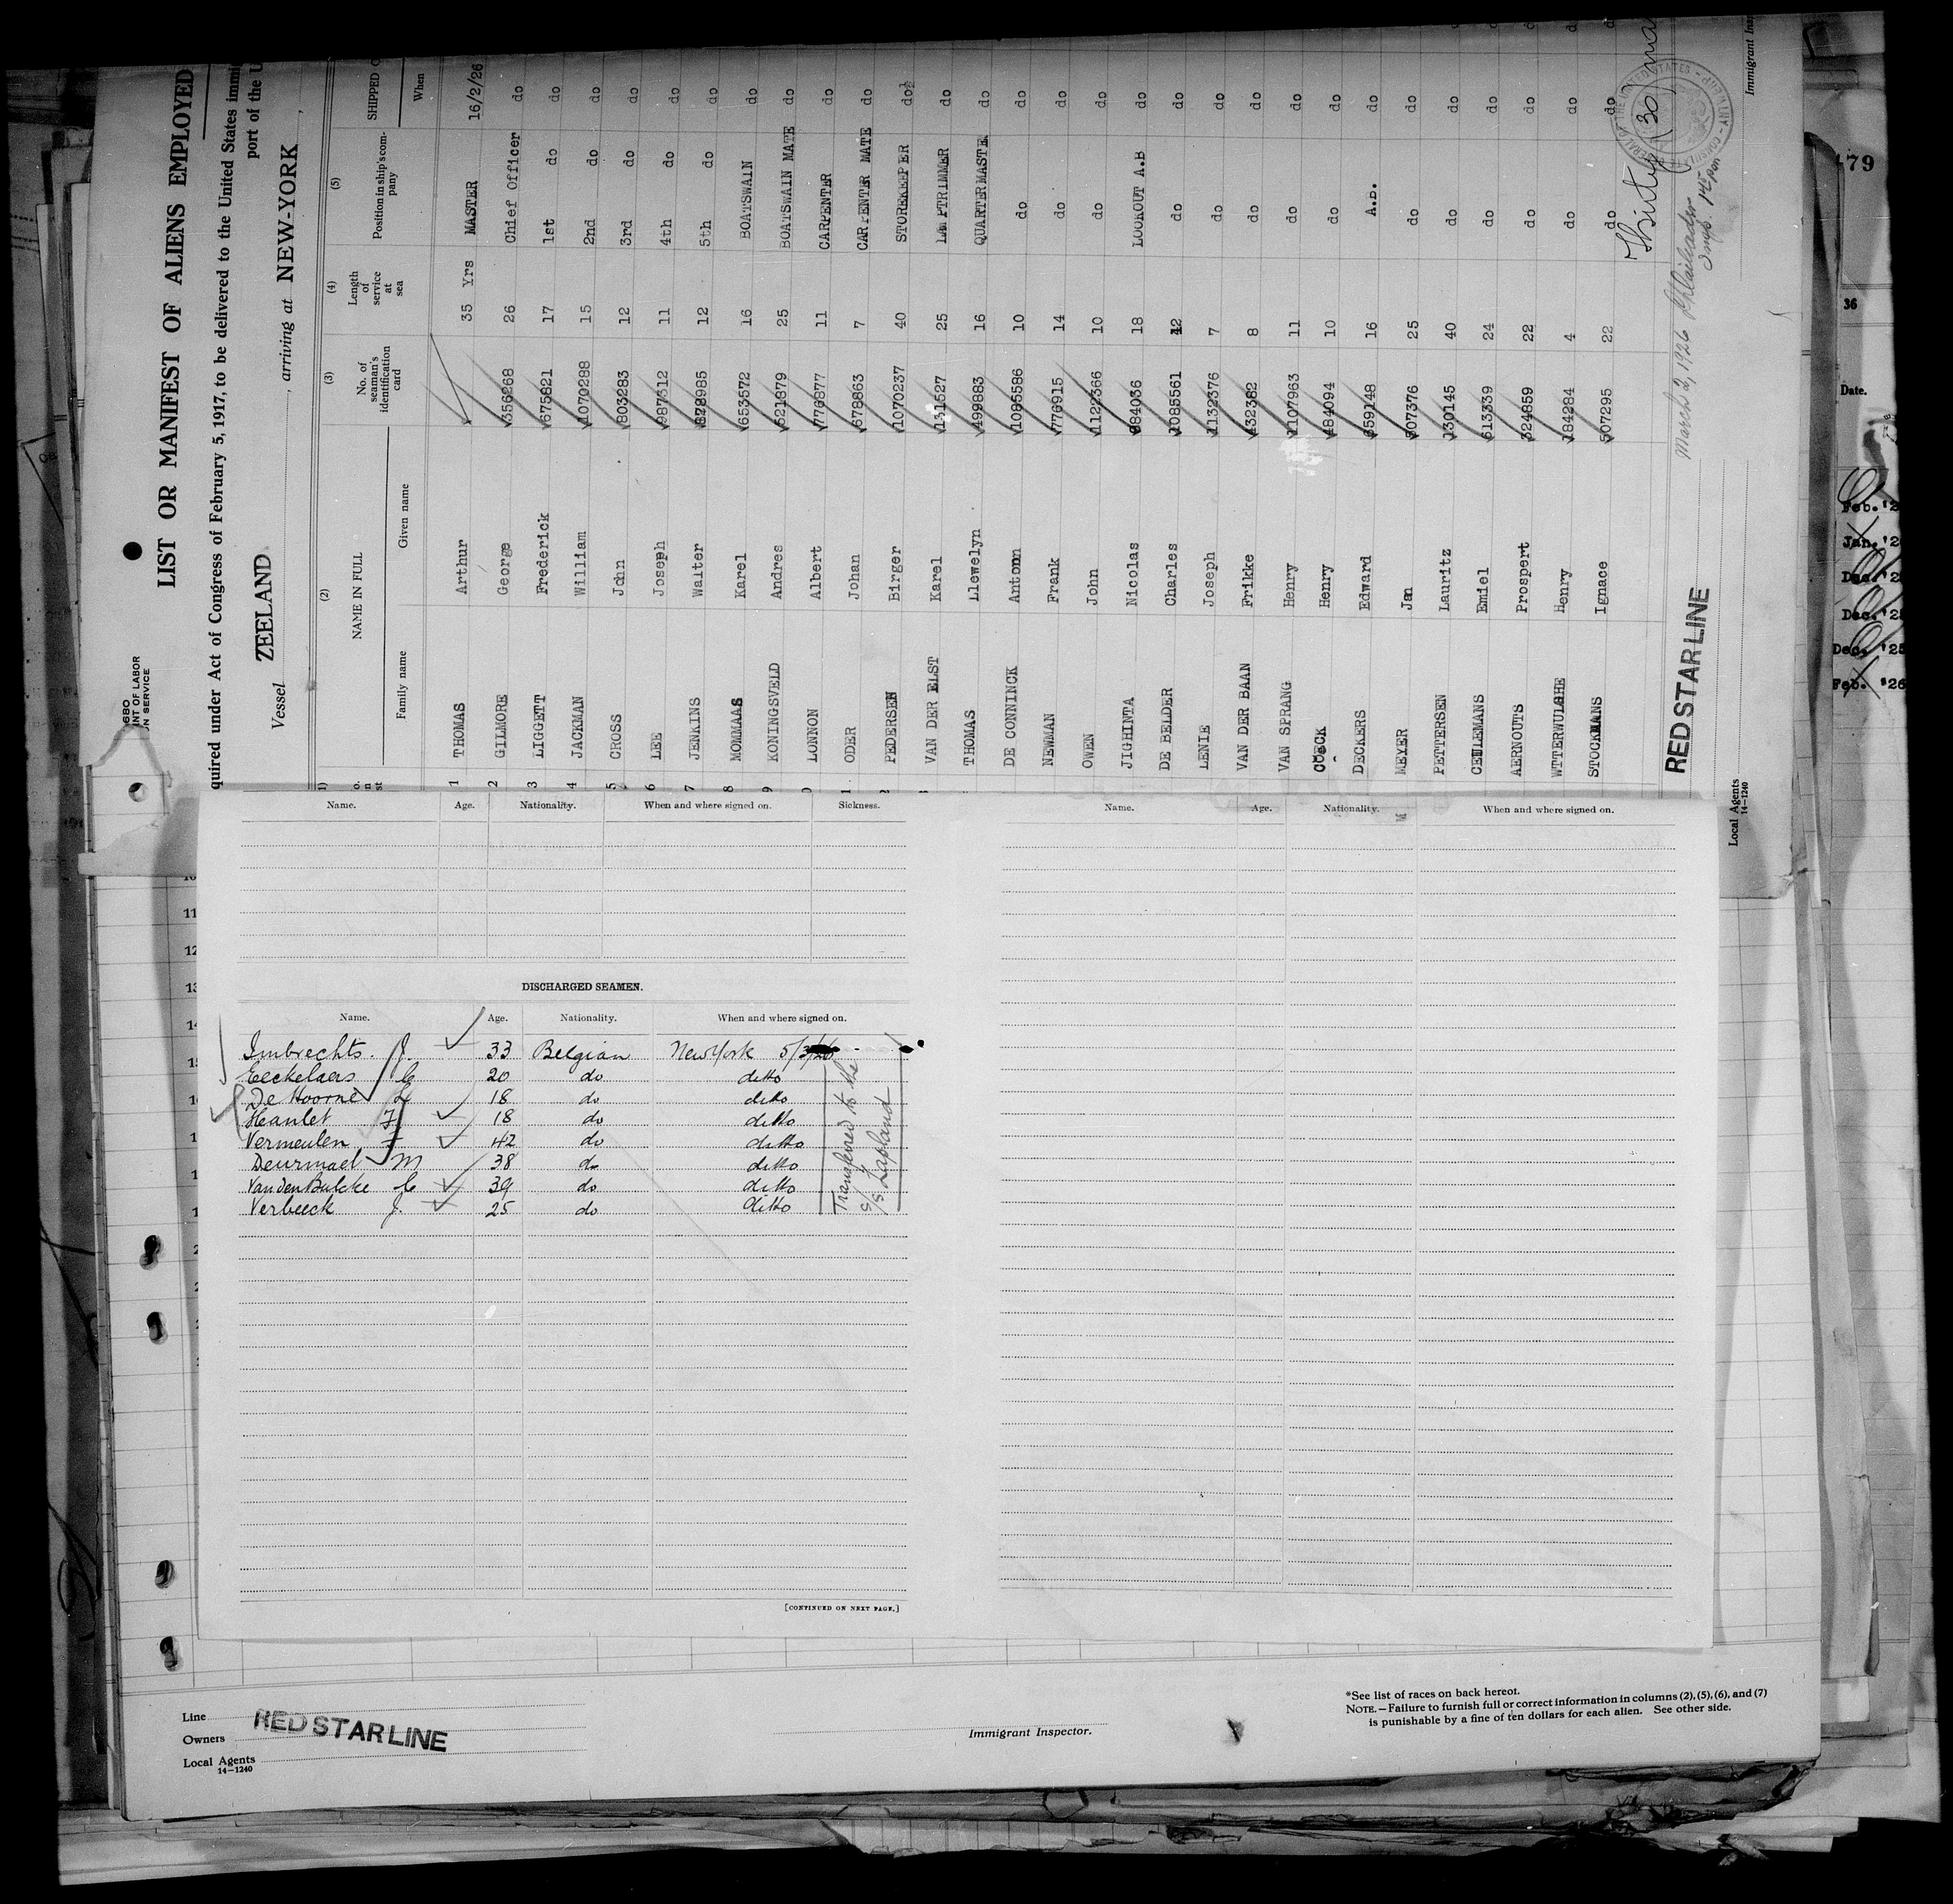 LIST OR MANIFEST OF ALIENS EMPLOYED
quired under Act of Congress of February 5, 1917, to be delivered to the United States immi
port of the U
Vessel ZEELAND , arriving at NEW-YORK ,
NT OF LABOR
N SERVICE
(2) (3) (4) (5)
NAME IN FULL No. of seaman's identification card Length of service at sea Position in ship's company SHIPPED
Family name Given name When
1 THOMAS Arthur 35 Yrs MASTER 16/2/26
2 GILMORE George 356268 26 Chief Officer do
3 LIGGETT Frederick 675821 17 1st do do
4 JACKMAN William 1070288 15 2nd do do
5 CROSS John 803283 12 3rd do do
6 LEE Joseph 987312 11 4th do do
7 JENKINS Walter 12 5th do do
8 MOMMAAS Karel 653572 16 BOATSWAIN do
9 KONINGSVELD Andres 521879 25 BOATSWAIN MATE do
LONNON Albert 776877 11 CARPENTER do
ODER Johan 678863 7 CARPENTER MATE do
PEDERSEN Birger 1070237 40 STOREKEEPER do
VAN DER ELST Karel 131527 25 LAMPTRIMMER do
THOMAS Llewelyn 499883 16 QUARTERMASTE do
DE CONNINCK Antonn 1085586 10 do do
NEWMAN Frank 776915 14 do do
OWEN John 1122366 10 do do
JIGHINTA Nicolas 884036 18 LOOKOUT A.B do
DE BELDER Charles 1085561 do do
LENIE Joseph 1132376 7 do do
VAN DER BAAN Frikke 432382 8 do do
VAN SPRANG Henry 1107963 11 do do
COECK Henry 484094 10 do do
DECKERS Edward 659148 16 A.B. do
MEYER Jan 907376 25 do do
PETTERSEN Lauritz 130145 40 do do
CEULEMANS Emiel 613339 24 do do
AERNOUTS Prospert 324859 22 do do
WTTERWULGHE Henry 184284 4 do do
STOCKMANS Ignace 507295 22 do do
Thirty (30)
March 2, 1926
RED STAR LINE
Local Agents
14—1240
Immigrant Ins
79
36
Date.
Feb. '2
Jan. '2
Dec. '2
Dec. '25
Dec. '25
Feb. '26
Name. Age. Nationality. When and where signed on. Sickness.
DISCHARGED SEAMEN.
Name. Age. Nationality. When and where signed on.
Imbrechts. J. 33 Belgian New York 5/3/26
Eeckelaers C 20 do ditto
De Hoorne L 18 do ditto
Heanlet F 18 do ditto
Vermeulen F 42 do ditto
Deurmael M 38 do ditto
Van Den Bulcke C 39 do ditto
Verbeeck J. 25 do ditto
Transfered to the
S/S Lapland
[CONTINUED ON NEXT PAGE.]
Name. Age. Nationality. When and where signed on.
11
12
13
14
15
Line
Owners RED STAR LINE
Local Agents
14—1240
Immigrant Inspector.
*See list of races on back hereof.
NOTE.—Failure to furnish full or correct information in columns (2), (5), (6), and (7)
is punishable by a fine of ten dollars for each alien. See other side.